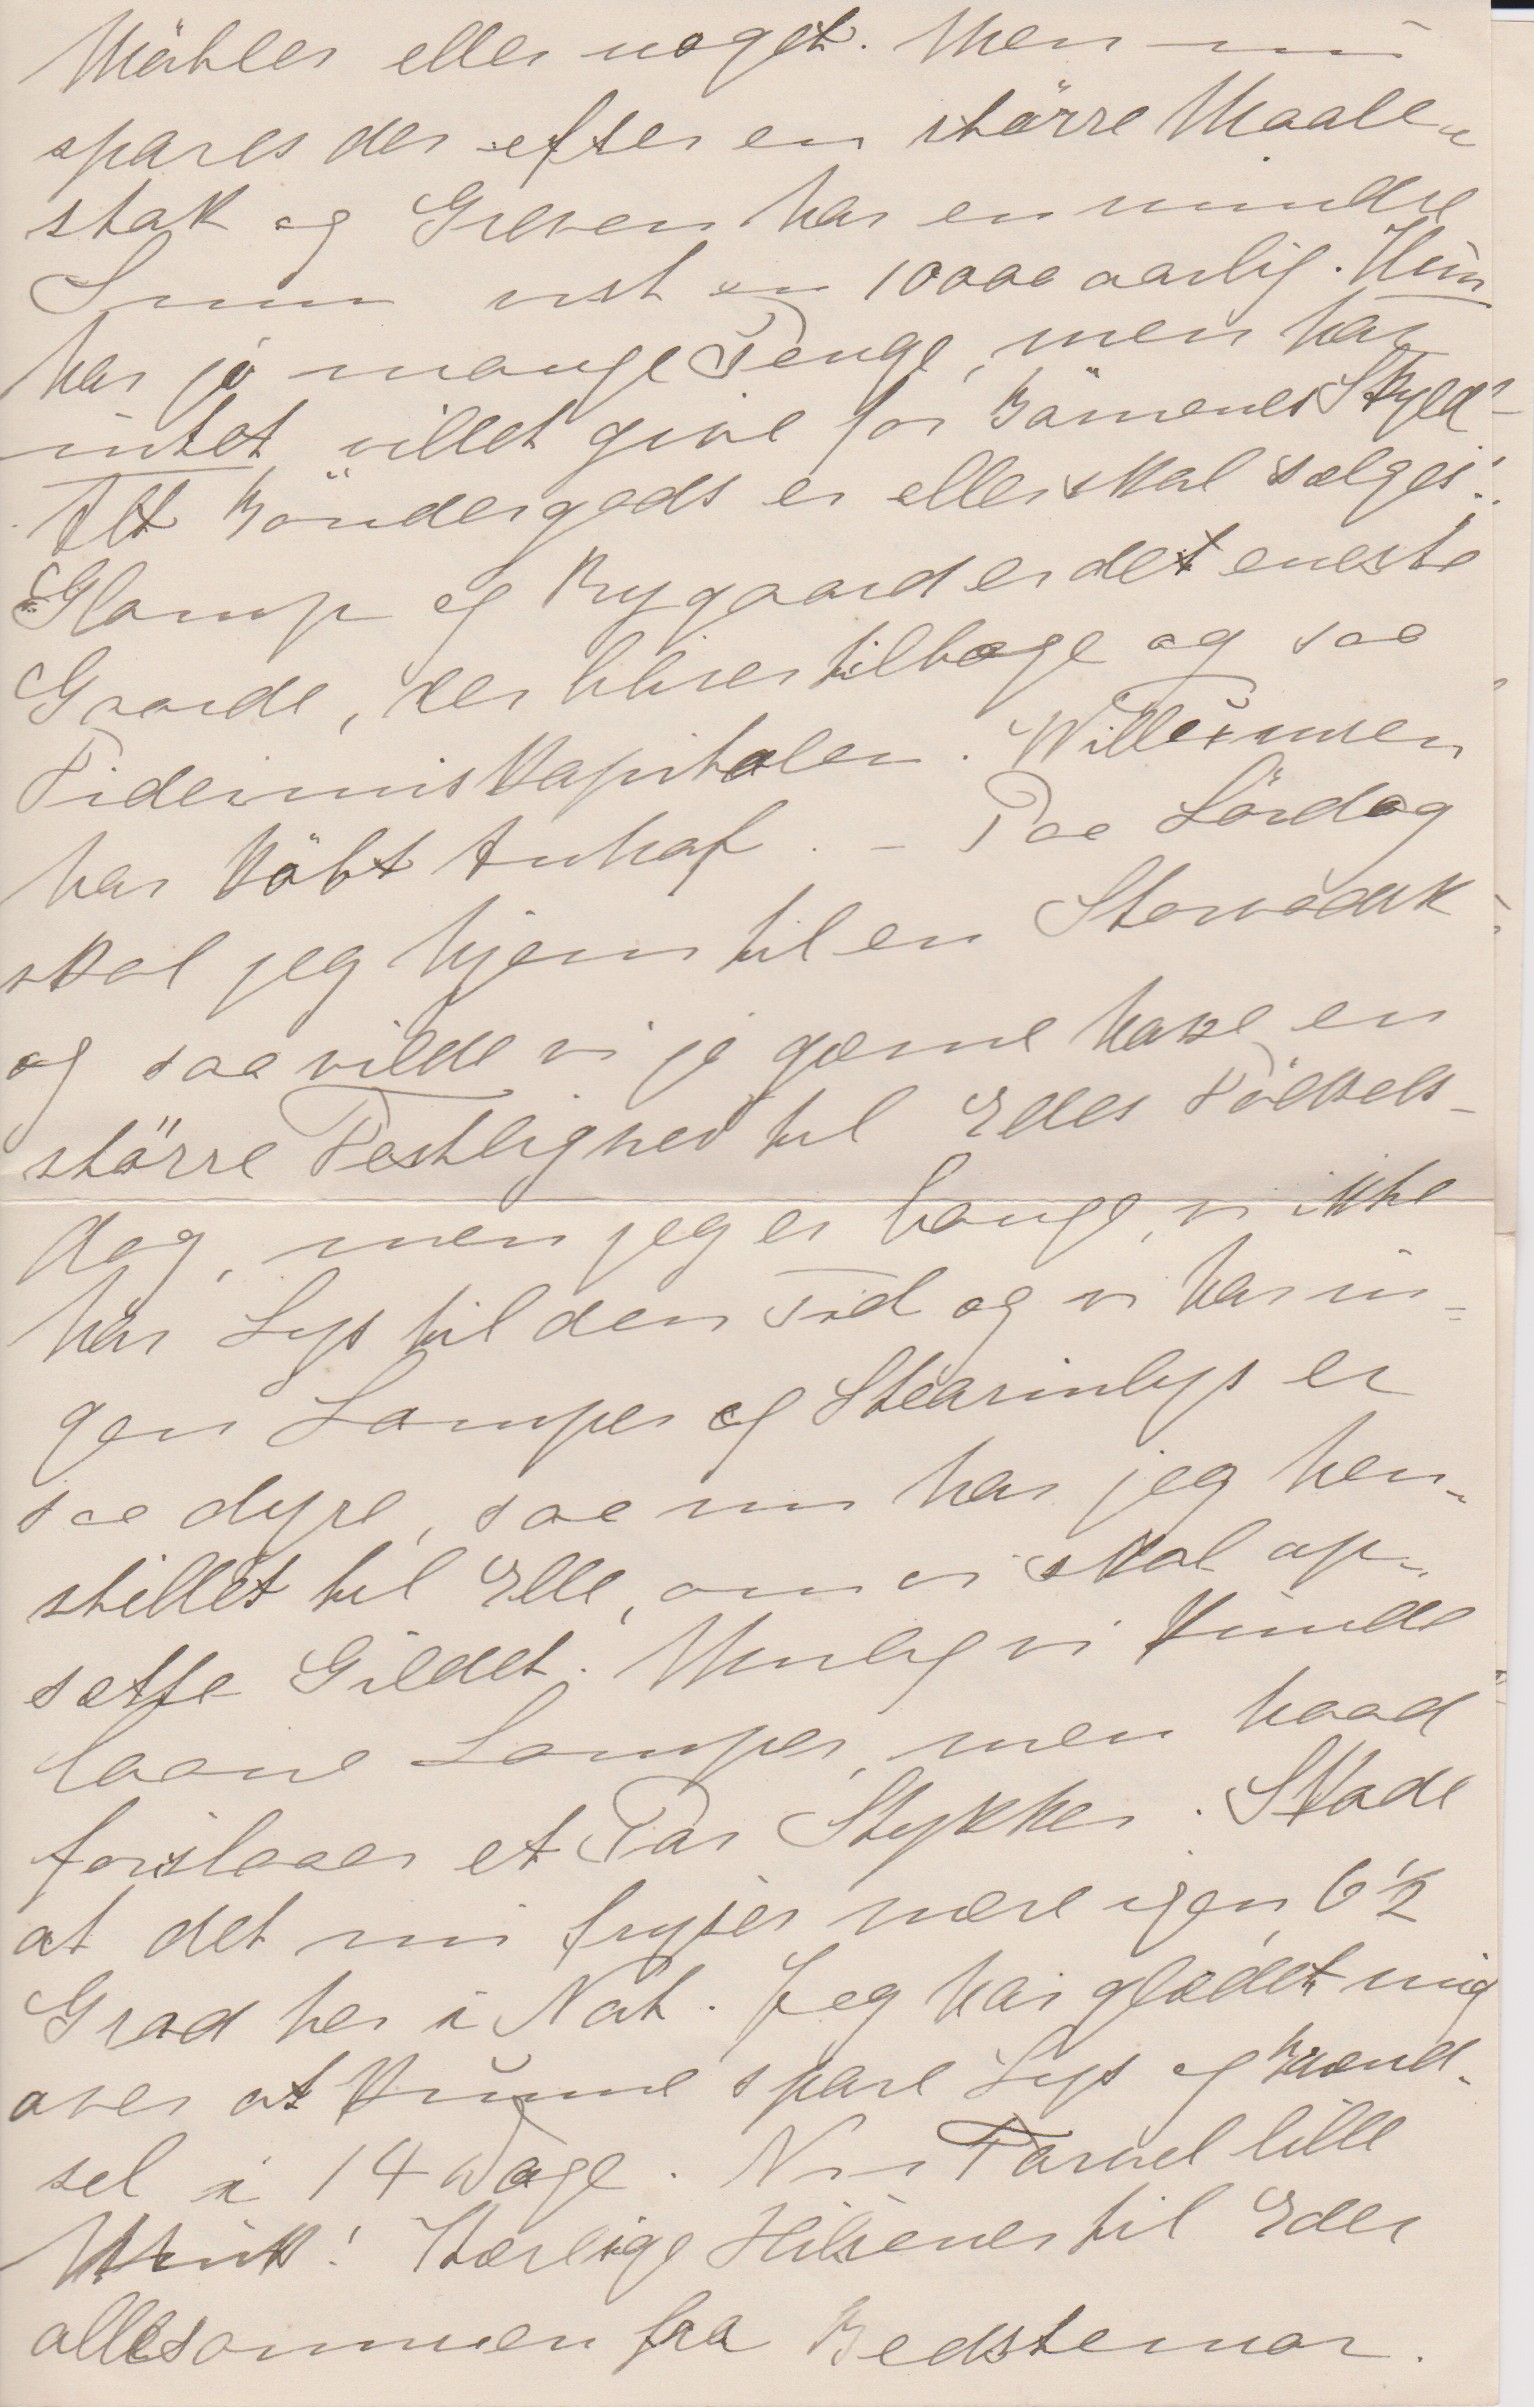 Möbler eller noget. Men nu
spares der efter en större Maale-
stok og Greven har en mindre
Sum vist en 10000 aarlig. Hun
har jo mange Penge, men har
intet villet give for Börnenes Skyld –
Alt Böndergods er eller skal sælges!
Glorup og Rygaard er det eneste
Gaarde, der bliver tilbage og saa
Fideicomiskapitalen. Willemsen
har köbt Anhof. – Paa Lördag
skal jeg hjem til en Storvask
og saa vilde vi jo gærne have en
större Festlighed til Elles Födsels-
dag, men jeg er bange, vi ikke
har Lys til den Tid og vi har in=
gen Lamper og Stearinlys er
saa dyre, saa nu har jeg hen-
stillet til Elle, om vi skal op-
sætte Gildet. Mulig vi kunde
laane Lamper, men hvad
forslaaer et Par Stykker. Skade
at det nu fryser mere igen, 6½
Grad her i Nat. Jeg har glædet mig
over at kunne spare Lys og Brænd-
sel i 14 Dage. Nu Farvel lille
Kærlige Hilsener til Eder
allesammen fra Bedstemor.